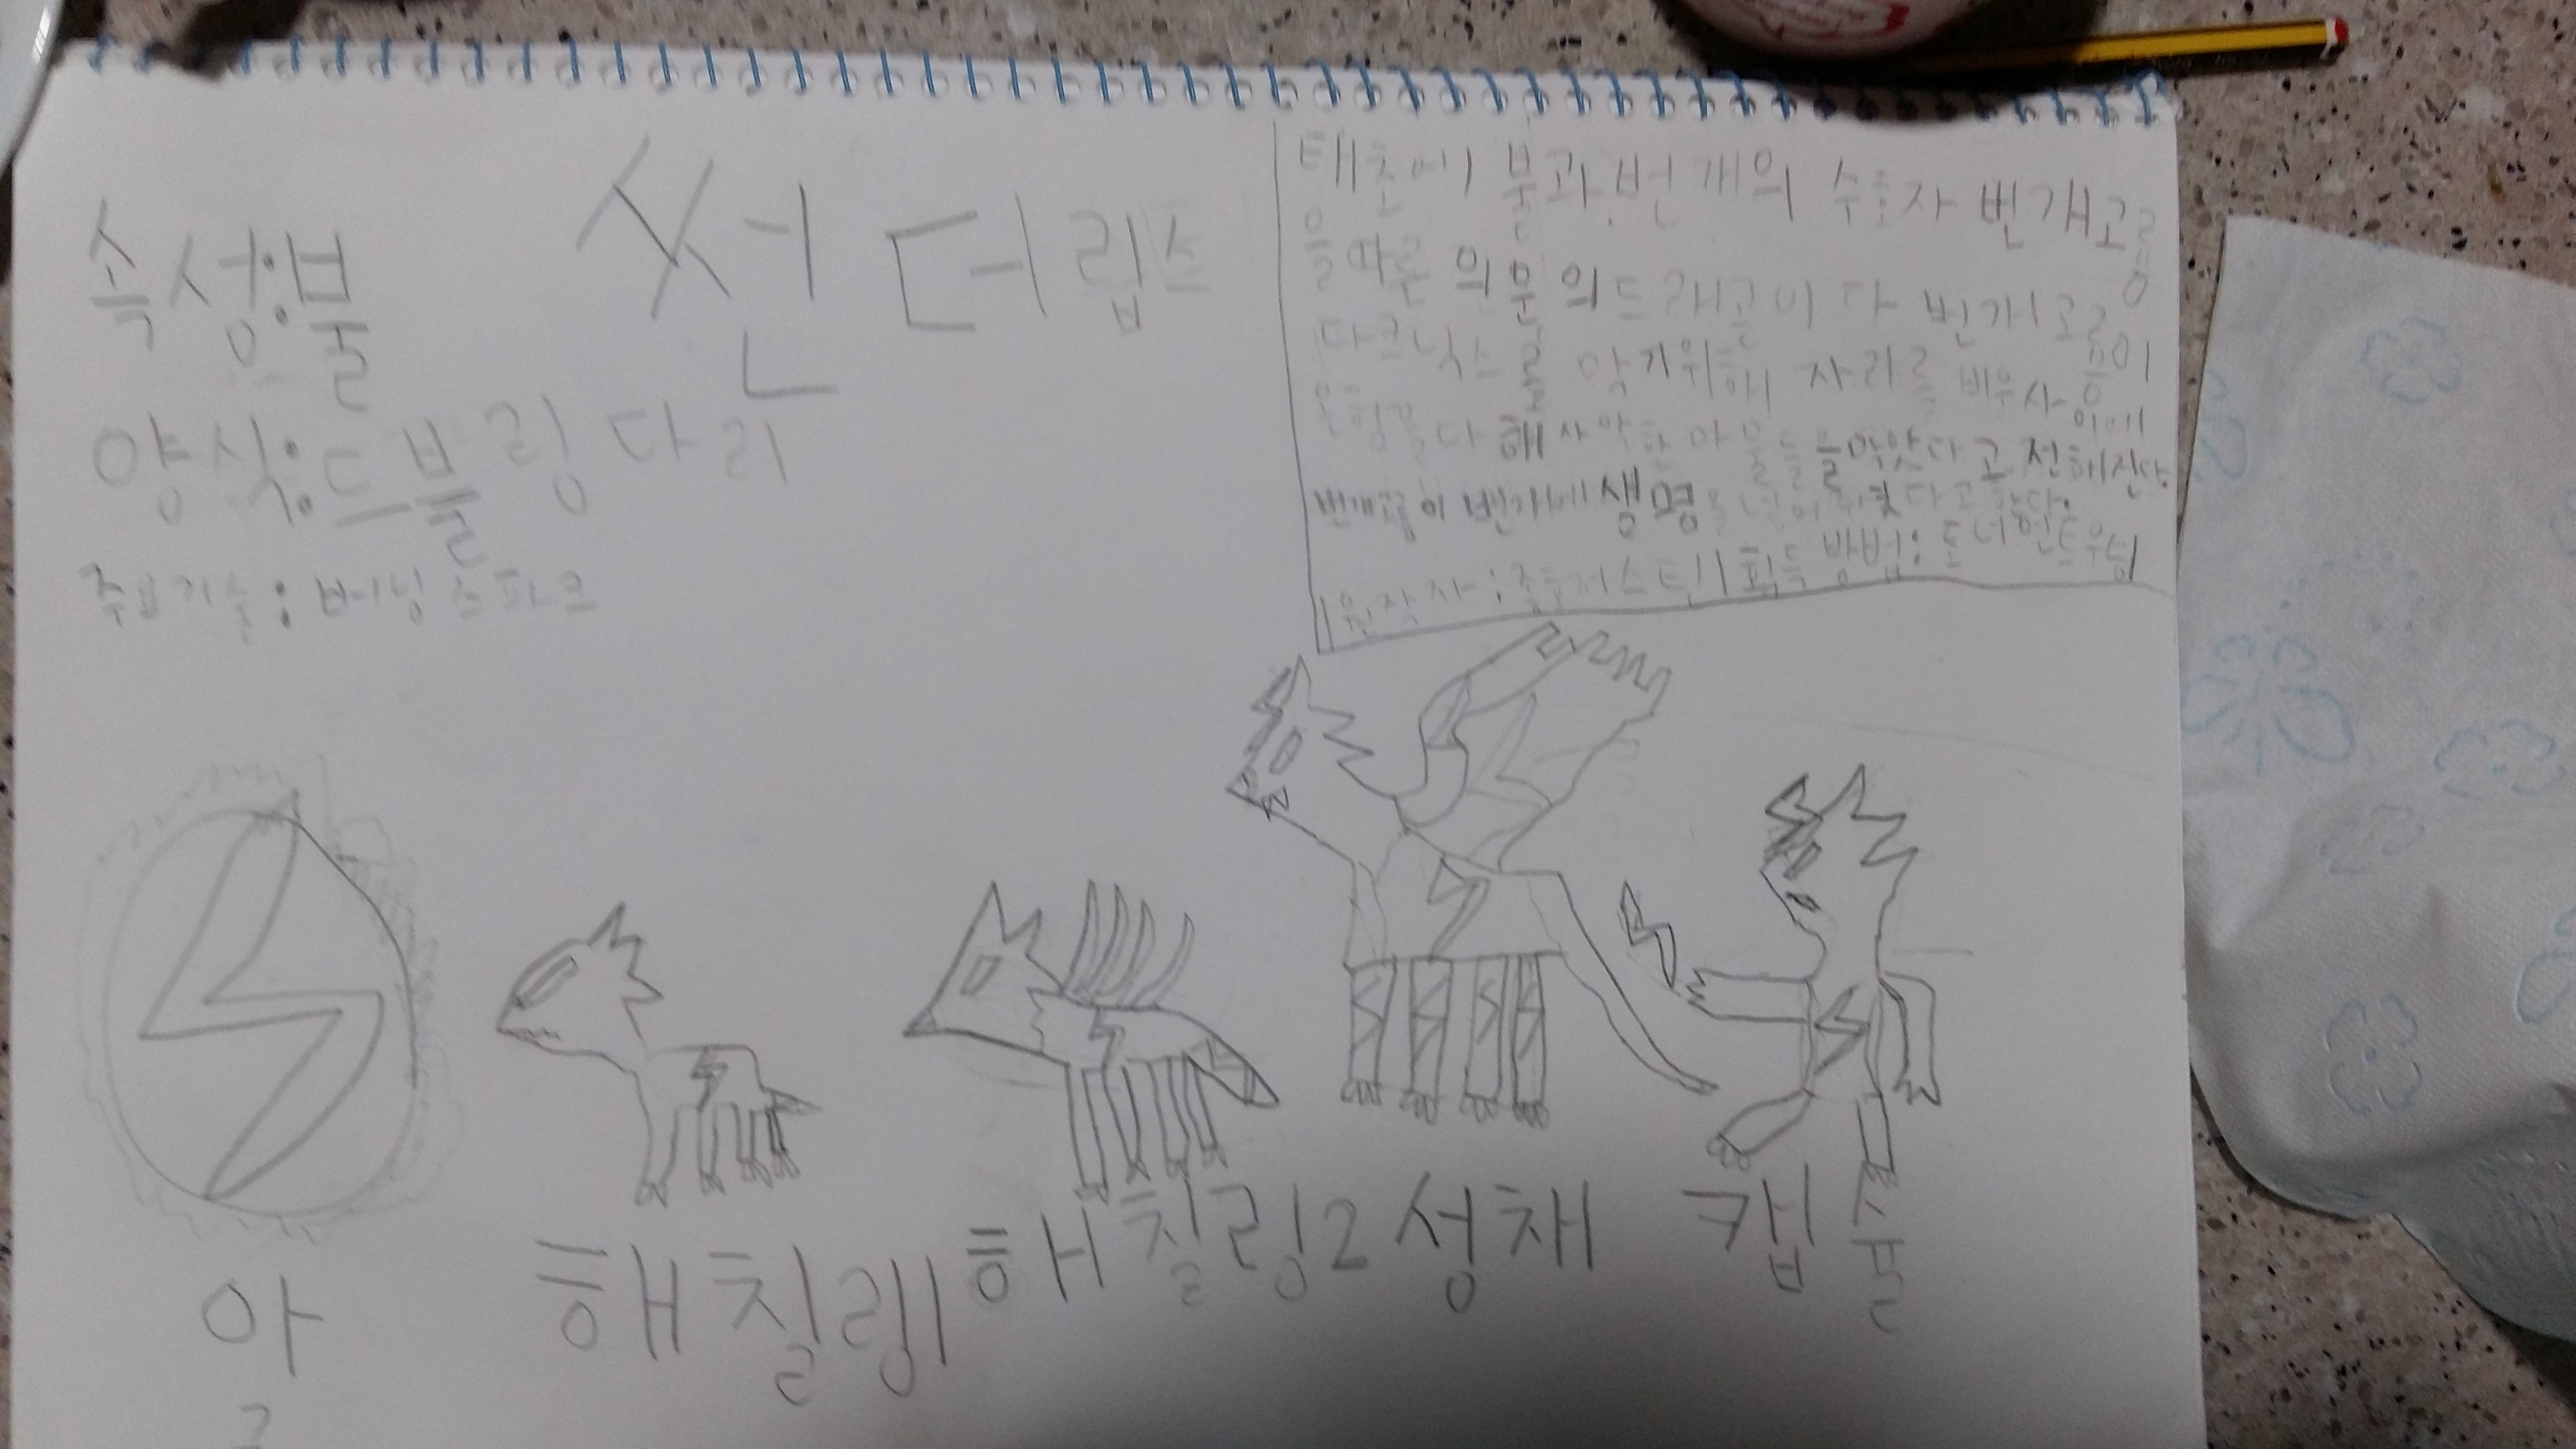 썬더립스
속성:불
양식:드블링다리
주요기술:버닝스파크
태초에 불과 번개의 수호자 번개고룡
을 따른 의문의 드래곤이다 번개고룡이
다크닉스를 막기위해 자리를 비운 사이에
온힘을 다해 사악한 마물들을 막앗다고 전해진다.
번개고룡이 번개에 생명을 다고한다.
원작자: 획득 방법:
알
해칠링1
해칠링2
성채
캡슐